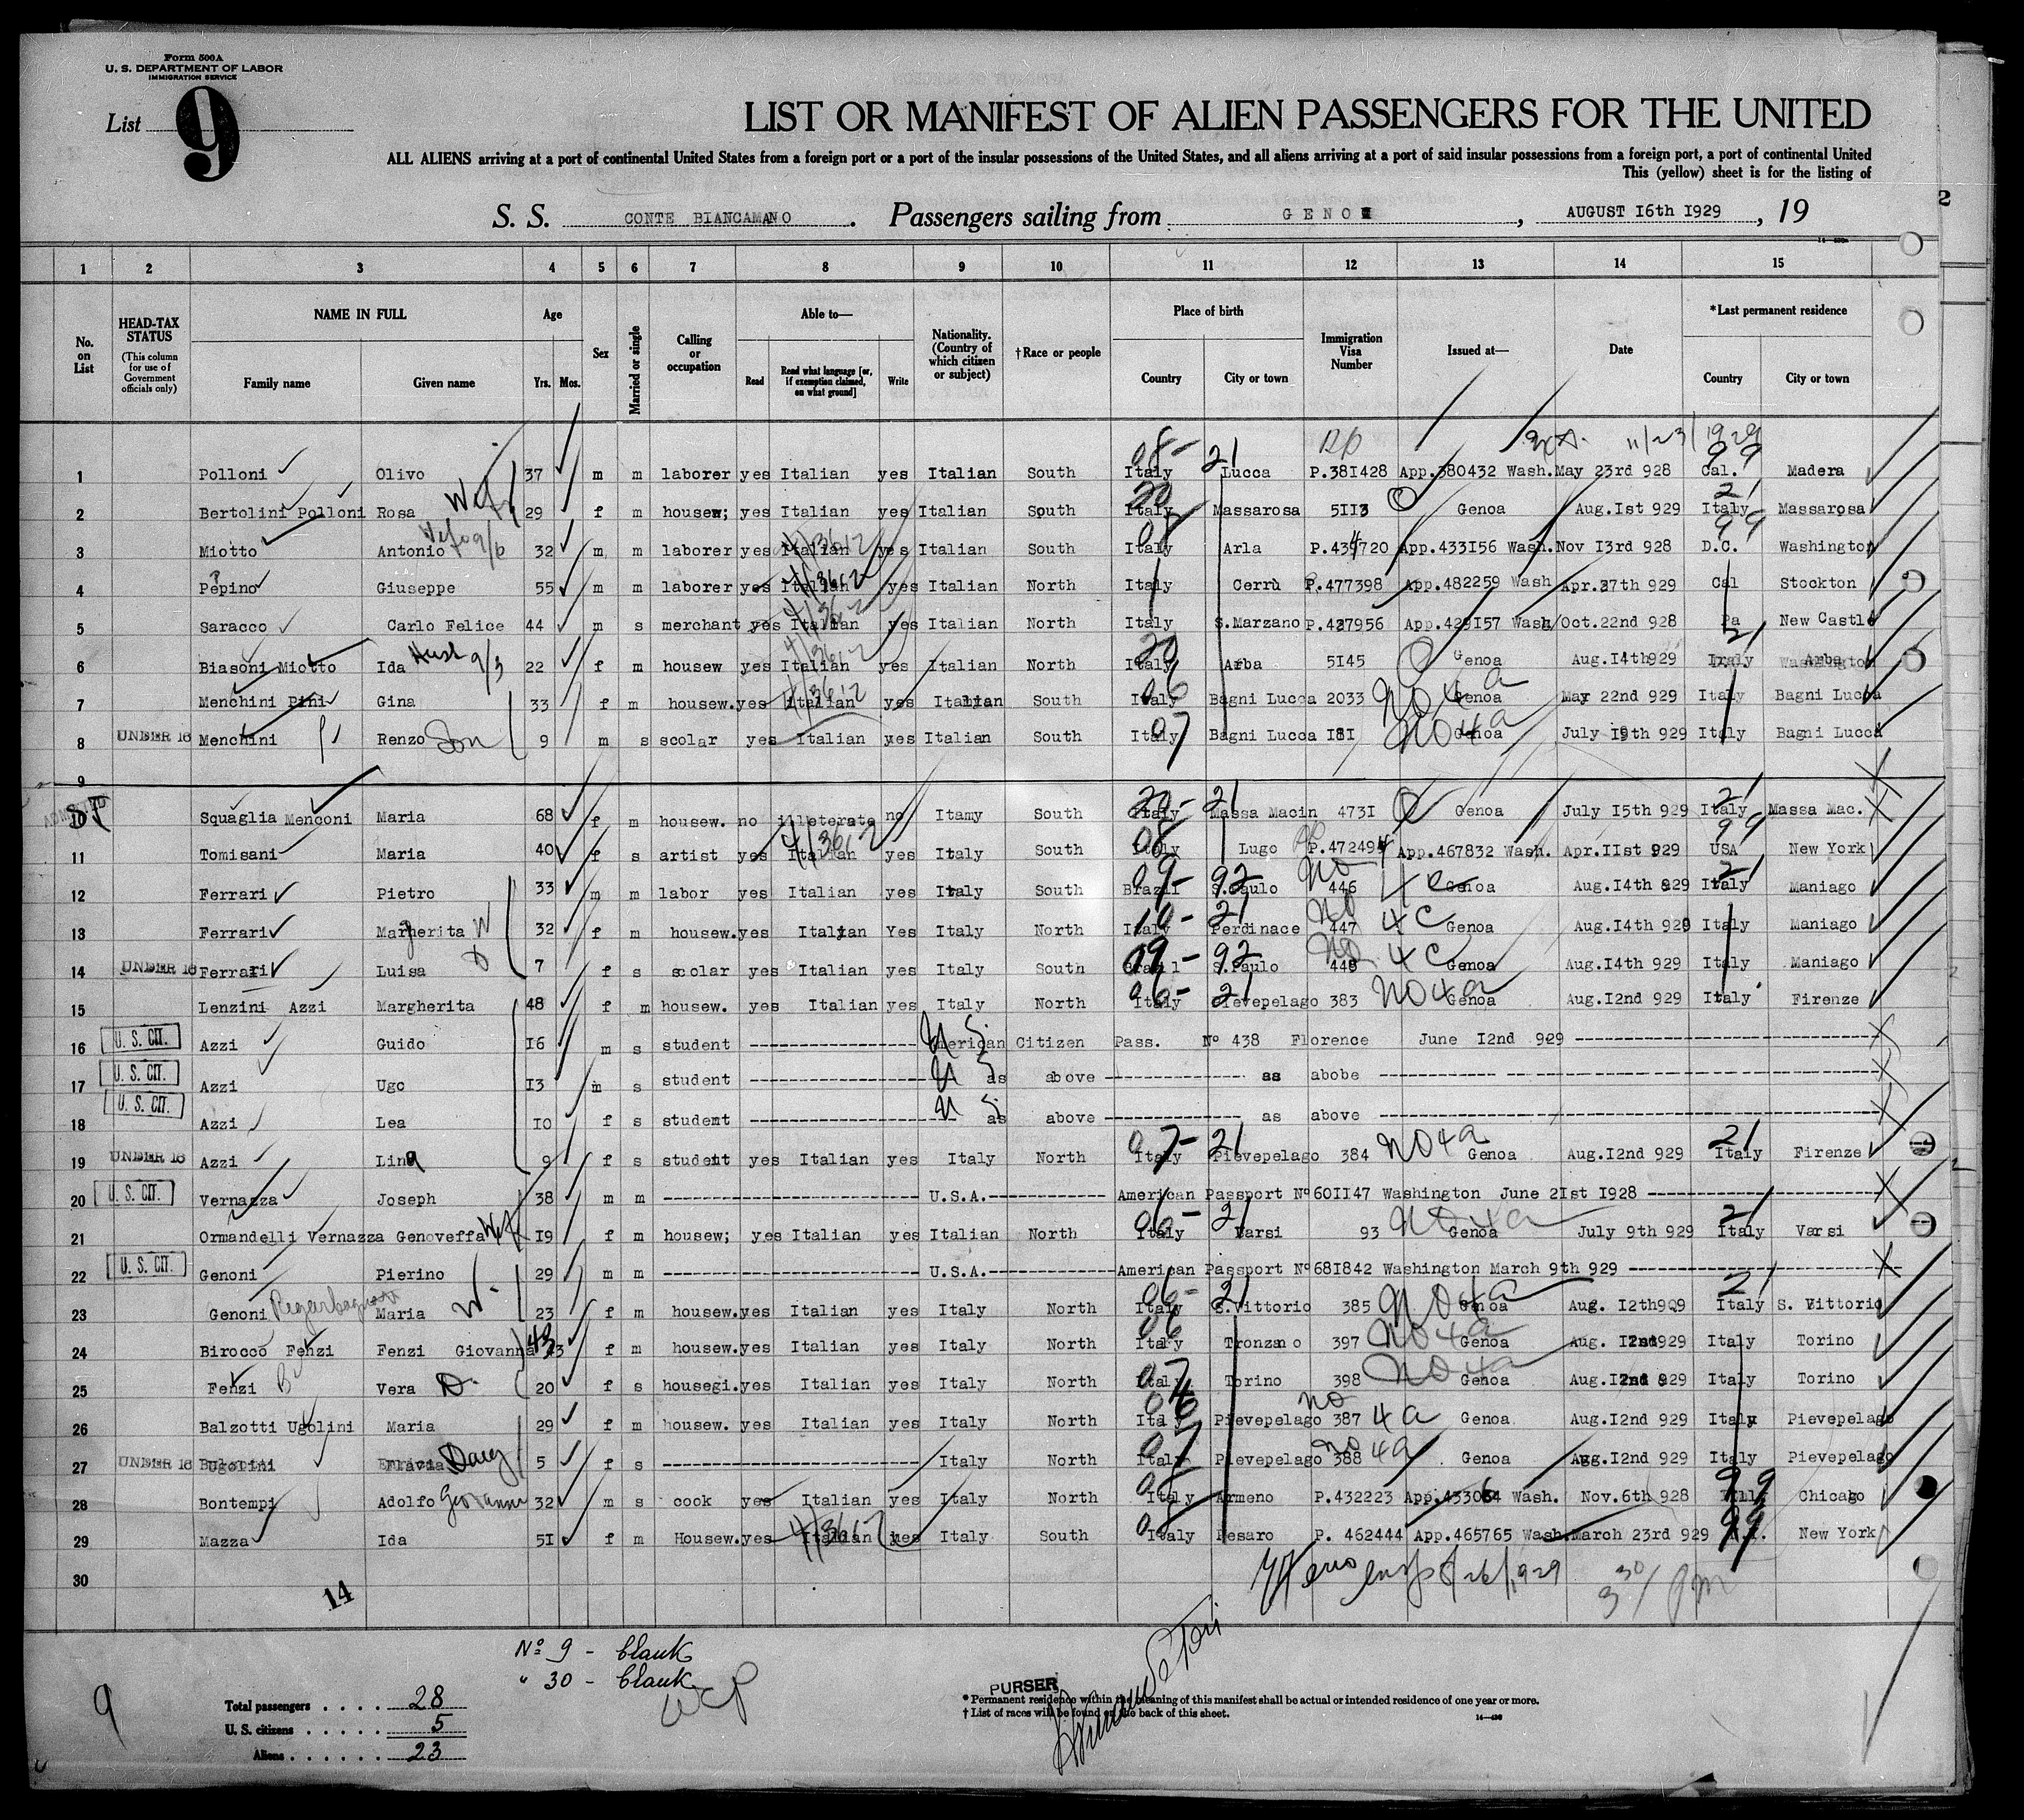 Form 500A
U. S. DEPARTMENT OF LABOR
IMMIGRATION SERVICE
List 9
LIST OR MANIFEST OF ALIEN PASSENGERS FOR THE UNITED
ALL ALIENS arriving at a port of continental United States from a foreign port or a port of the insular possessions of the United States, and all aliens arriving at a port of said insular possessions from a foreign port, a port of continental United
This (yellow) sheet is for the listing of
S. S. CONTE BIANCAMANO. Passengers sailing from GENOA, AUGUST I6th I929, 19
1 2 3 4 5 6 7 8 9 10 11 12 13 14 15
No. on List
HEAD-TAX STATUS (This column for use of Government officials only)
NAME IN FULL Family name Given name
Age Yrs. Mos.
Sex
Married or single
Calling or occupation
Able to— Read Read what language [or, if exemption claimed, on what ground] Write
Nationality. (Country of which citizen or subject)
†Race or people
Place of birth Country City or town
Immigration Visa Number
Issued at—
Date
*Last permanent residence Country City or town
11/23/1929
1 Polloni Olivo 37 m m laborer yes Italian yes Italian South Italy Lucca P.38I428 App.380432 Wash. May 23rd 928 Cal. Madera
2 Bertolini Polloni Rosa 29 f m housew; yes Italian yes Italian South Italy Massarosa 5II3 Genoa Aug.Ist 929 Italy Massarosa
3 Miotto Antonio 32 m m laborer yes Italian yes Italian South Italy Arla P.434720 App.433I56 Wash. Nov I3rd 928 D.C. Washington
4 Pepino Giuseppe 55 m m laborer yes Italian yes Italian North Italy Cerrù P.477398 App.482259 Wash Apr.27th 929 Cal Stockton
5 Saracco Carlo Felice 44 m s merchant yes Italian yes Italian North Italy S.Marzano P.427956 App.429I57 Wash Oct.22nd 928 Pa New Castle
6 Biasoni Miotto Ida Husb 9/3 22 f m housew yes Italian yes Italian North Italy Arba 5I45 Genoa Aug.I4th929 Italy Arba
7 Menchini Pini Gina 33 f m housew. yes Italian yes Italian South Italy Bagni Lucca 2033 NO 4a Genoa May 22nd 929 Italy Bagni Lucca
8 UNDER 16 Menchini Renzo Son 9 m s scolar yes Italian yes Italian South Italy Bagni Lucca I8I NO 4a Genoa July I9th 929 Italy Bagni Lucca
9
10 Squaglia Menconi Maria 68 f m housew. no illeterate no Itamy South Italy Massa Macin 473I Genoa July I5th 929 Italy Massa Mac.
11 Tomisani Maria 40 f s artist yes Italian yes Italy South Italy Lugo P.472494 App.467832 Wash. Apr.IIst 929 USA New York
12 Ferrari Pietro 33 m m labor yes Italian yes Italy South Brazil S.Paulo 446 NO 4c Genoa Aug.I4th 929 Italy Maniago
13 Ferrari Margherita W 32 f m housew. yes Italian Yes Italy North Italy Perdinace 447 NO 4c Genoa Aug.I4th 929 Italy Maniago
14 UNDER 16 Ferrari Luisa D 7 f s scolar yes Italian yes Italy South Brazil S.Paulo 448 NO 4c Genoa Aug.I4th 929 Italy Maniago
15 Lenzini Azzi Margherita 48 f m housew. yes Italian yes Italy North Italy Pievepelago 383 NO 4a Genoa Aug.I2nd 929 Italy Firenze
16 U. S. CIT. Azzi Guido I6 m s student American Citizen Pass. Nº 438 Florence June I2nd 929
17 U. S. CIT. Azzi Ugo I3 m s student as above as abobe
18 U. S. CIT. Azzi Lea I0 f s student as above as above
19 UNDER 16 Azzi Lina 9 f s student yes Italian yes Italy North Italy Pievepelago 384 NO 4a Genoa Aug.I2nd 929 Italy Firenze
20 U. S. CIT. Vernazza Joseph 38 m m U.S.A. American Passport Nº60II47 Washington June 2Ist I928
21 Ormandelli Vernazza Genoveffa I9 f m housew; yes Italian yes Italian North Italy Varsi 93 NO 4a Genoa July 9th 929 Italy Varsi
22 U. S. CIT. Genoni Pierino 29 m m U.S.A. American Passport Nº68I842 Washington March 9th 929
23 Genoni Maria W. 23 f m housew. yes Italian yes Italy North Italy S.Vittorio 385 NO 4a Genoa Aug. I2th929 Italy S. Vittorio
24 Birocco Fenzi Fenzi Giovanna 43 f m housew. yes Italian yes Italy North Italy Tronzano 397 NO 4a Genoa Aug. I2nd929 Italy Torino
25 Fenzi Vera D. 20 f s housegi. yes Italian yes Italy North Italy Torino 398 NO 4a Genoa Aug.I2nd 929 Italy Torino
26 Balzotti Ugolini Maria 29 f m housew. yes Italian yes Italy North Italy Pievepelago 387 NO 4a Genoa Aug.I2nd 929 Italy Pievepelago
27 UNDER 16 Ugolini Flavia 5 f s Italy North Italy Pievepelago 388 NO 4a Genoa Aug.I2nd 929 Italy Pievepelago
28 Bontempi Adolfo Giovanni 32 m s cook yes Italian yes Italy North Italy Armeno P.432223 App.433064 Wash. Nov.6th 928 Ill. Chicago
29 Mazza Ida 5I f m Housew. yes Italian yes Italy South Italy Pesaro P. 462444 App.465765 Wash. March 23rd 929 N.Y. New York
30
14
3 30/ pm
Nº 9 - blank
" 30 - blank
WCP
9
Total passengers . . . . 28
U. S. citizens . . . . . 5
Aliens . . . . . . 23
PURSER
* Permanent residence within the meaning of this manifest shall be actual or intended residence of one year or more.
† List of races will be found on the back of this sheet.